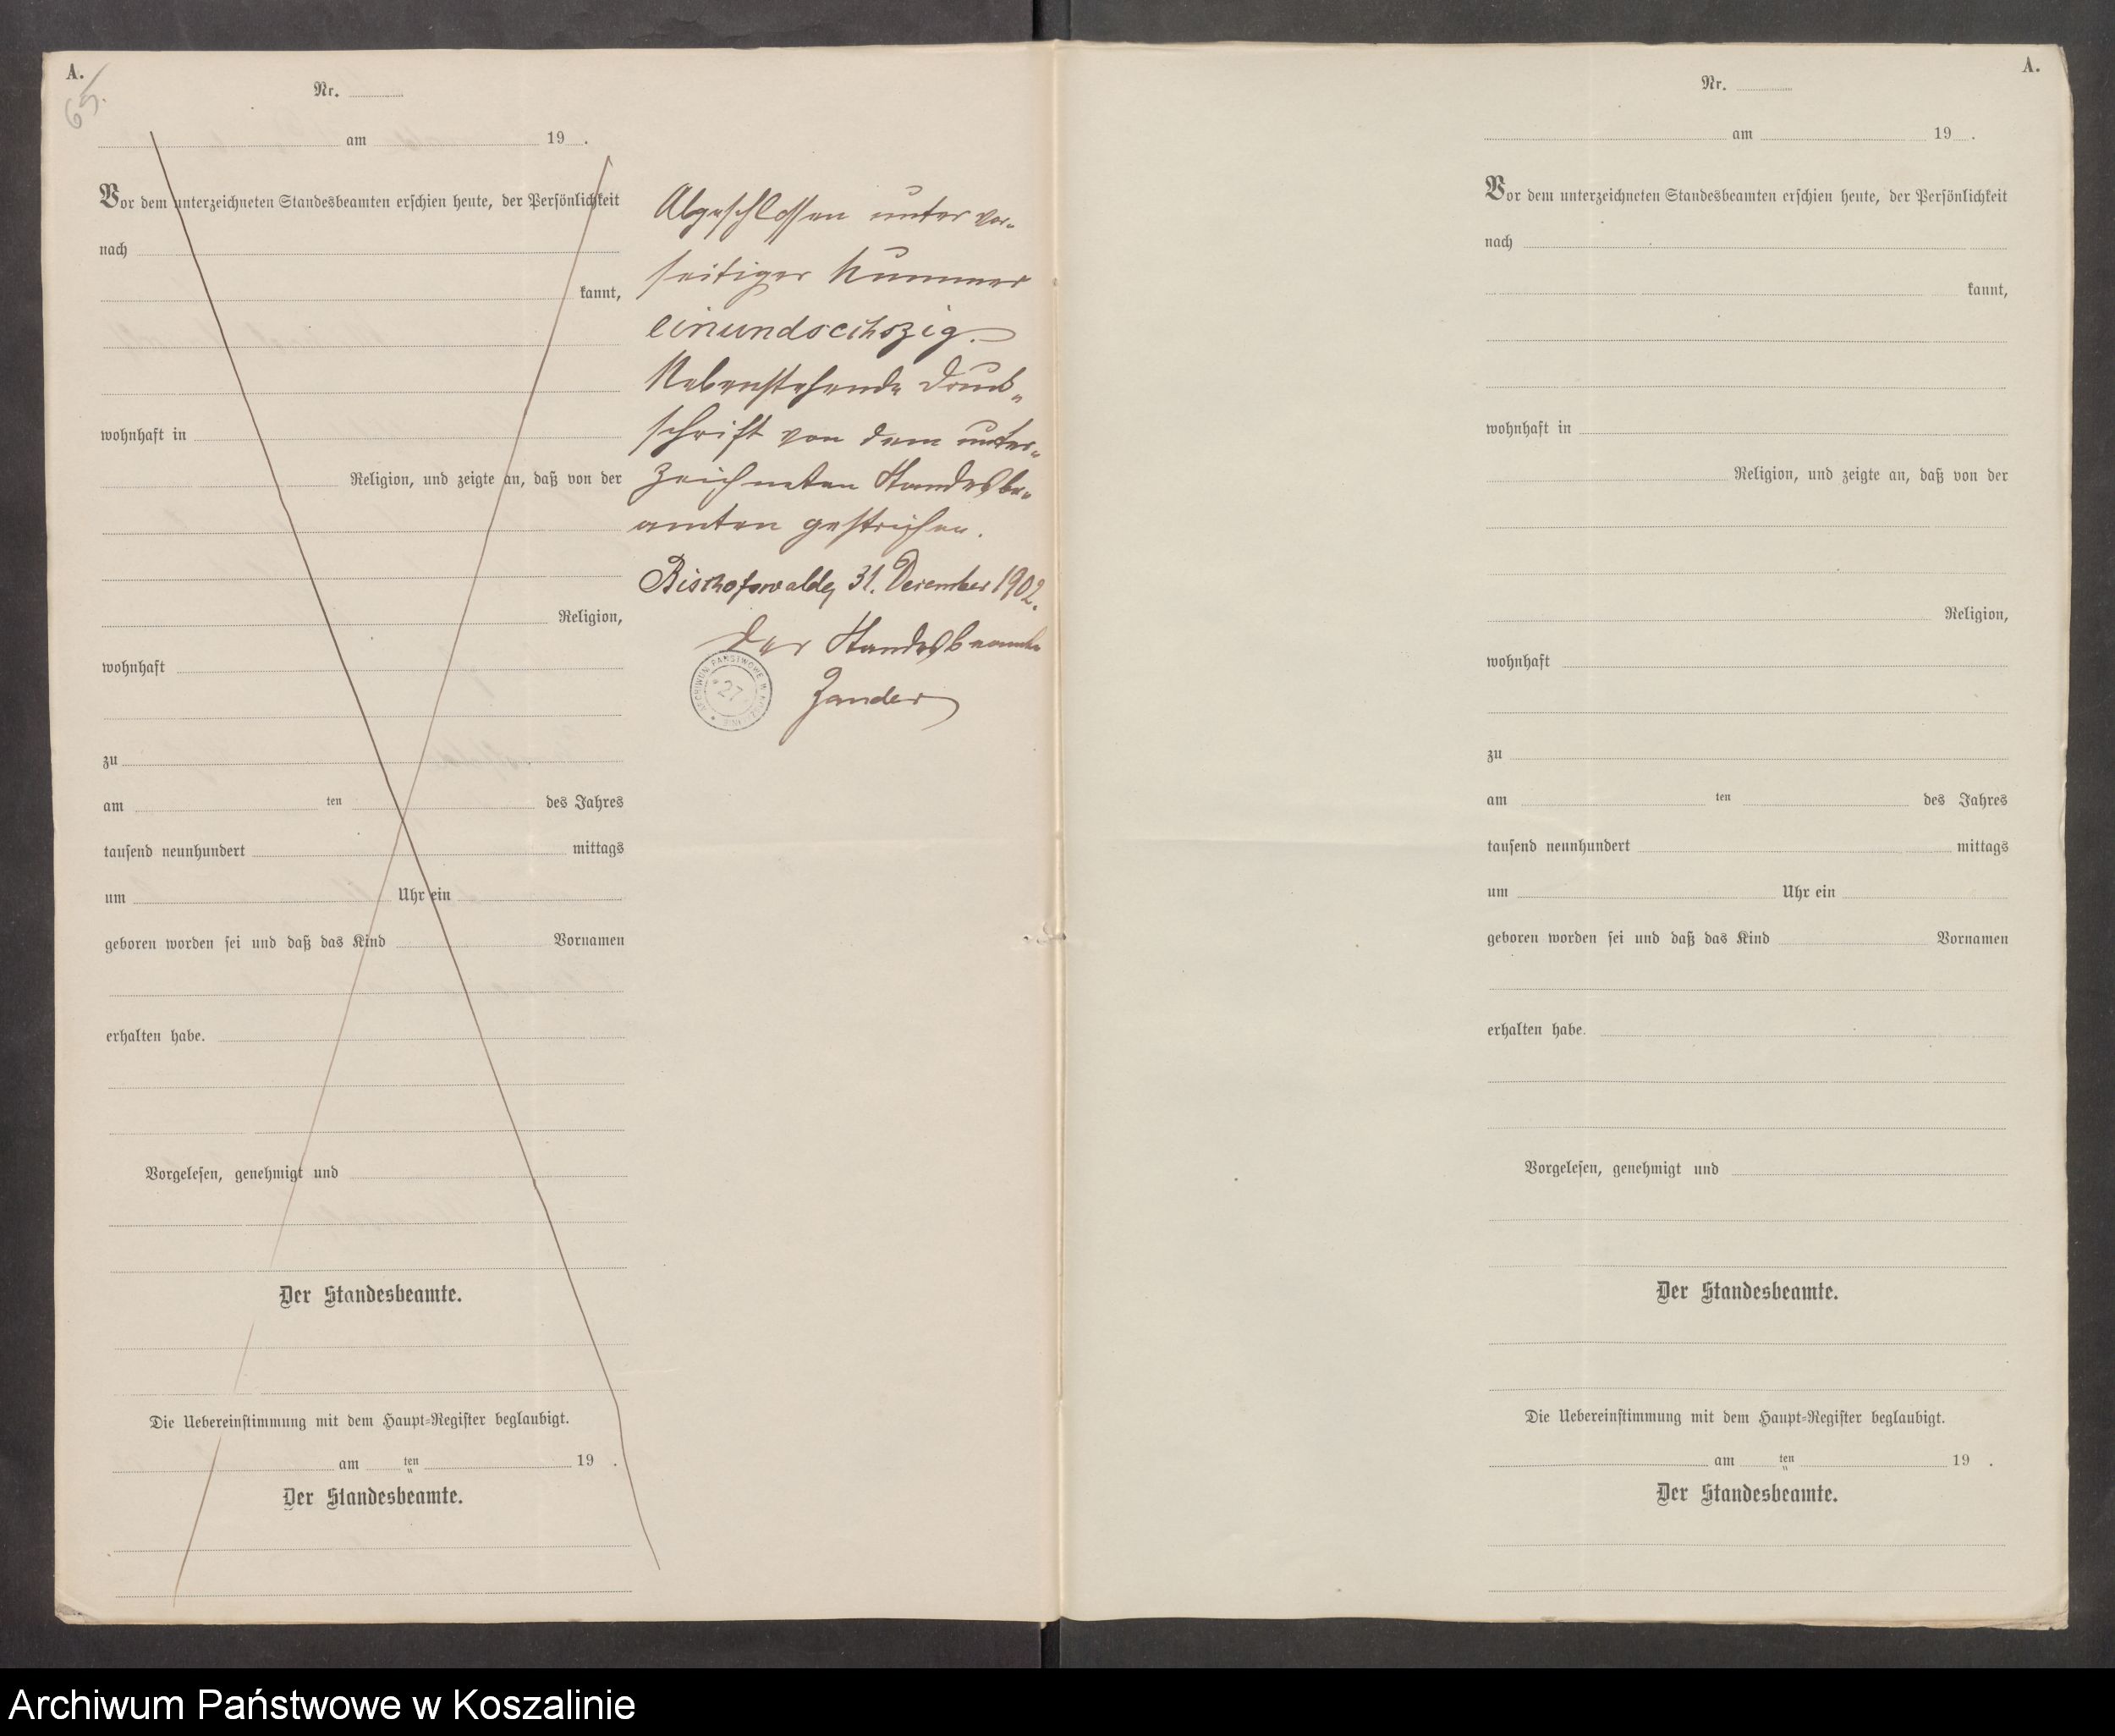 A.
65.
Nr.
am 19 .
Vor dem unterzeichneten Standesbeamten erschien heute, der Persönlichkeit
nach
kannt,
wohnhaft in
Religion, und zeigte an, daß von der
Religion,
wohnhaft
zu
am ten des Jahres
tausend neunhundert mittags
um Uhr ein
geboren worden sei und daß das Kind Vornamen
erhalten habe.
Vorgelesen, genehmigt und
Der Standesbeamte.
Die Uebereinstimmung mit dem Haupt=Register beglaubigt.
am ten 19 .
Der Standesbeamte.
Abgeschlossen unter vor-
seitiger Nummer
einundsechszig.
Nebenstehende Druck-
schrift von dem unter-
zeichneten Standesbe-
amten gestrichen.
Bischofswalde, 31. Dezember 1902.
Der Standesbeamte
Zander
ARCHIWUM PAŃSTWOWE W KOSZALINIE
27
A.
Nr.
am 19 .
Vor dem unterzeichneten Standesbeamten erschien heute, der Persönlichkeit
nach
kannt,
wohnhaft in
Religion, und zeigte an, daß von der
Religion,
wohnhaft
zu
am ten des Jahres
tausend neunhundert mittags
um Uhr ein
geboren worden sei und daß das Kind Vornamen
erhalten habe.
Vorgelesen, genehmigt und
Der Standesbeamte.
Die Uebereinstimmung mit dem Haupt=Register beglaubigt.
am ten 19 .
Der Standesbeamte.
Archiwum Państwowe w Koszalinie